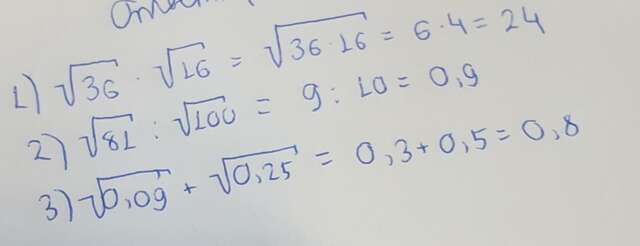 1) √36 · √16 = √36·16 = 6·4 = 24
2) √81 : √100 = 9 : 10 = 0,9
3) √0,09 + √0,25 = 0,3+0,5 = 0,8